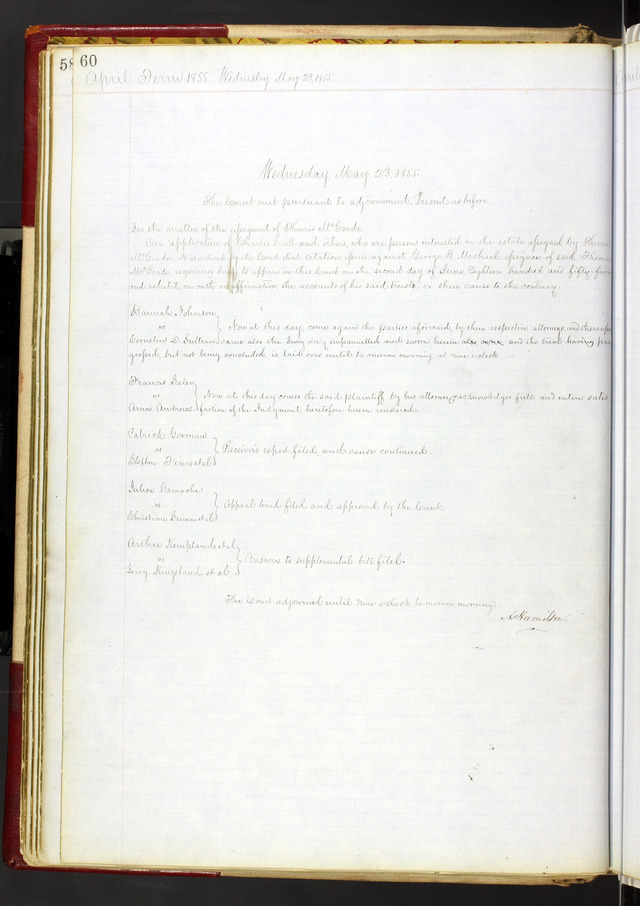 58 60
April Term 1855. Wednesday May 23, 1855.
Wednesday May 23, 1855.
The Court met pursuant to adjournment, Present as before.
In the matter of the assignment of Thomas McGrade.
On application of Charles and others, who are persons interested in the estate assigned by Thomas
McGrade, It is ordered by the Court that citation issue against George B. Michael assignee of said Thomas
McGrade, requiring him to appear in this Court on the second day of June, Eighteen hundred and fifty-five
and exhibit on oath or affirmation, the accounts of his said trusts, or shew cause to the contrary.
Hannah Johnson
vs } Now at this day, come again the parties aforesaid, by their respective attorneys, and thereupon
Cornelius D. Sullivan came also the Jury empannelled and sworn herein and the trial having pro
gressed, but not being concluded is laid over until to morrow morning at nine o'clock
Francis Haley
vs } Now at this day comes the said plaintiff by his attorney & acknowledges full and entire satis
Amos Andrews faction of the Judgment heretofore herein rendered.
Patrick Gorman
vs } Receiver's report filed, and cause continued.
Stephen et al
Julien Gamache
vs } Appeal bond filed and approved by the Court.
Christian et al
Archer et al
vs } Answer to supplemental bill filed.
Kingsland et al
The Court adjourned until nine o'clock to morrow morning.
A. Hamilton.